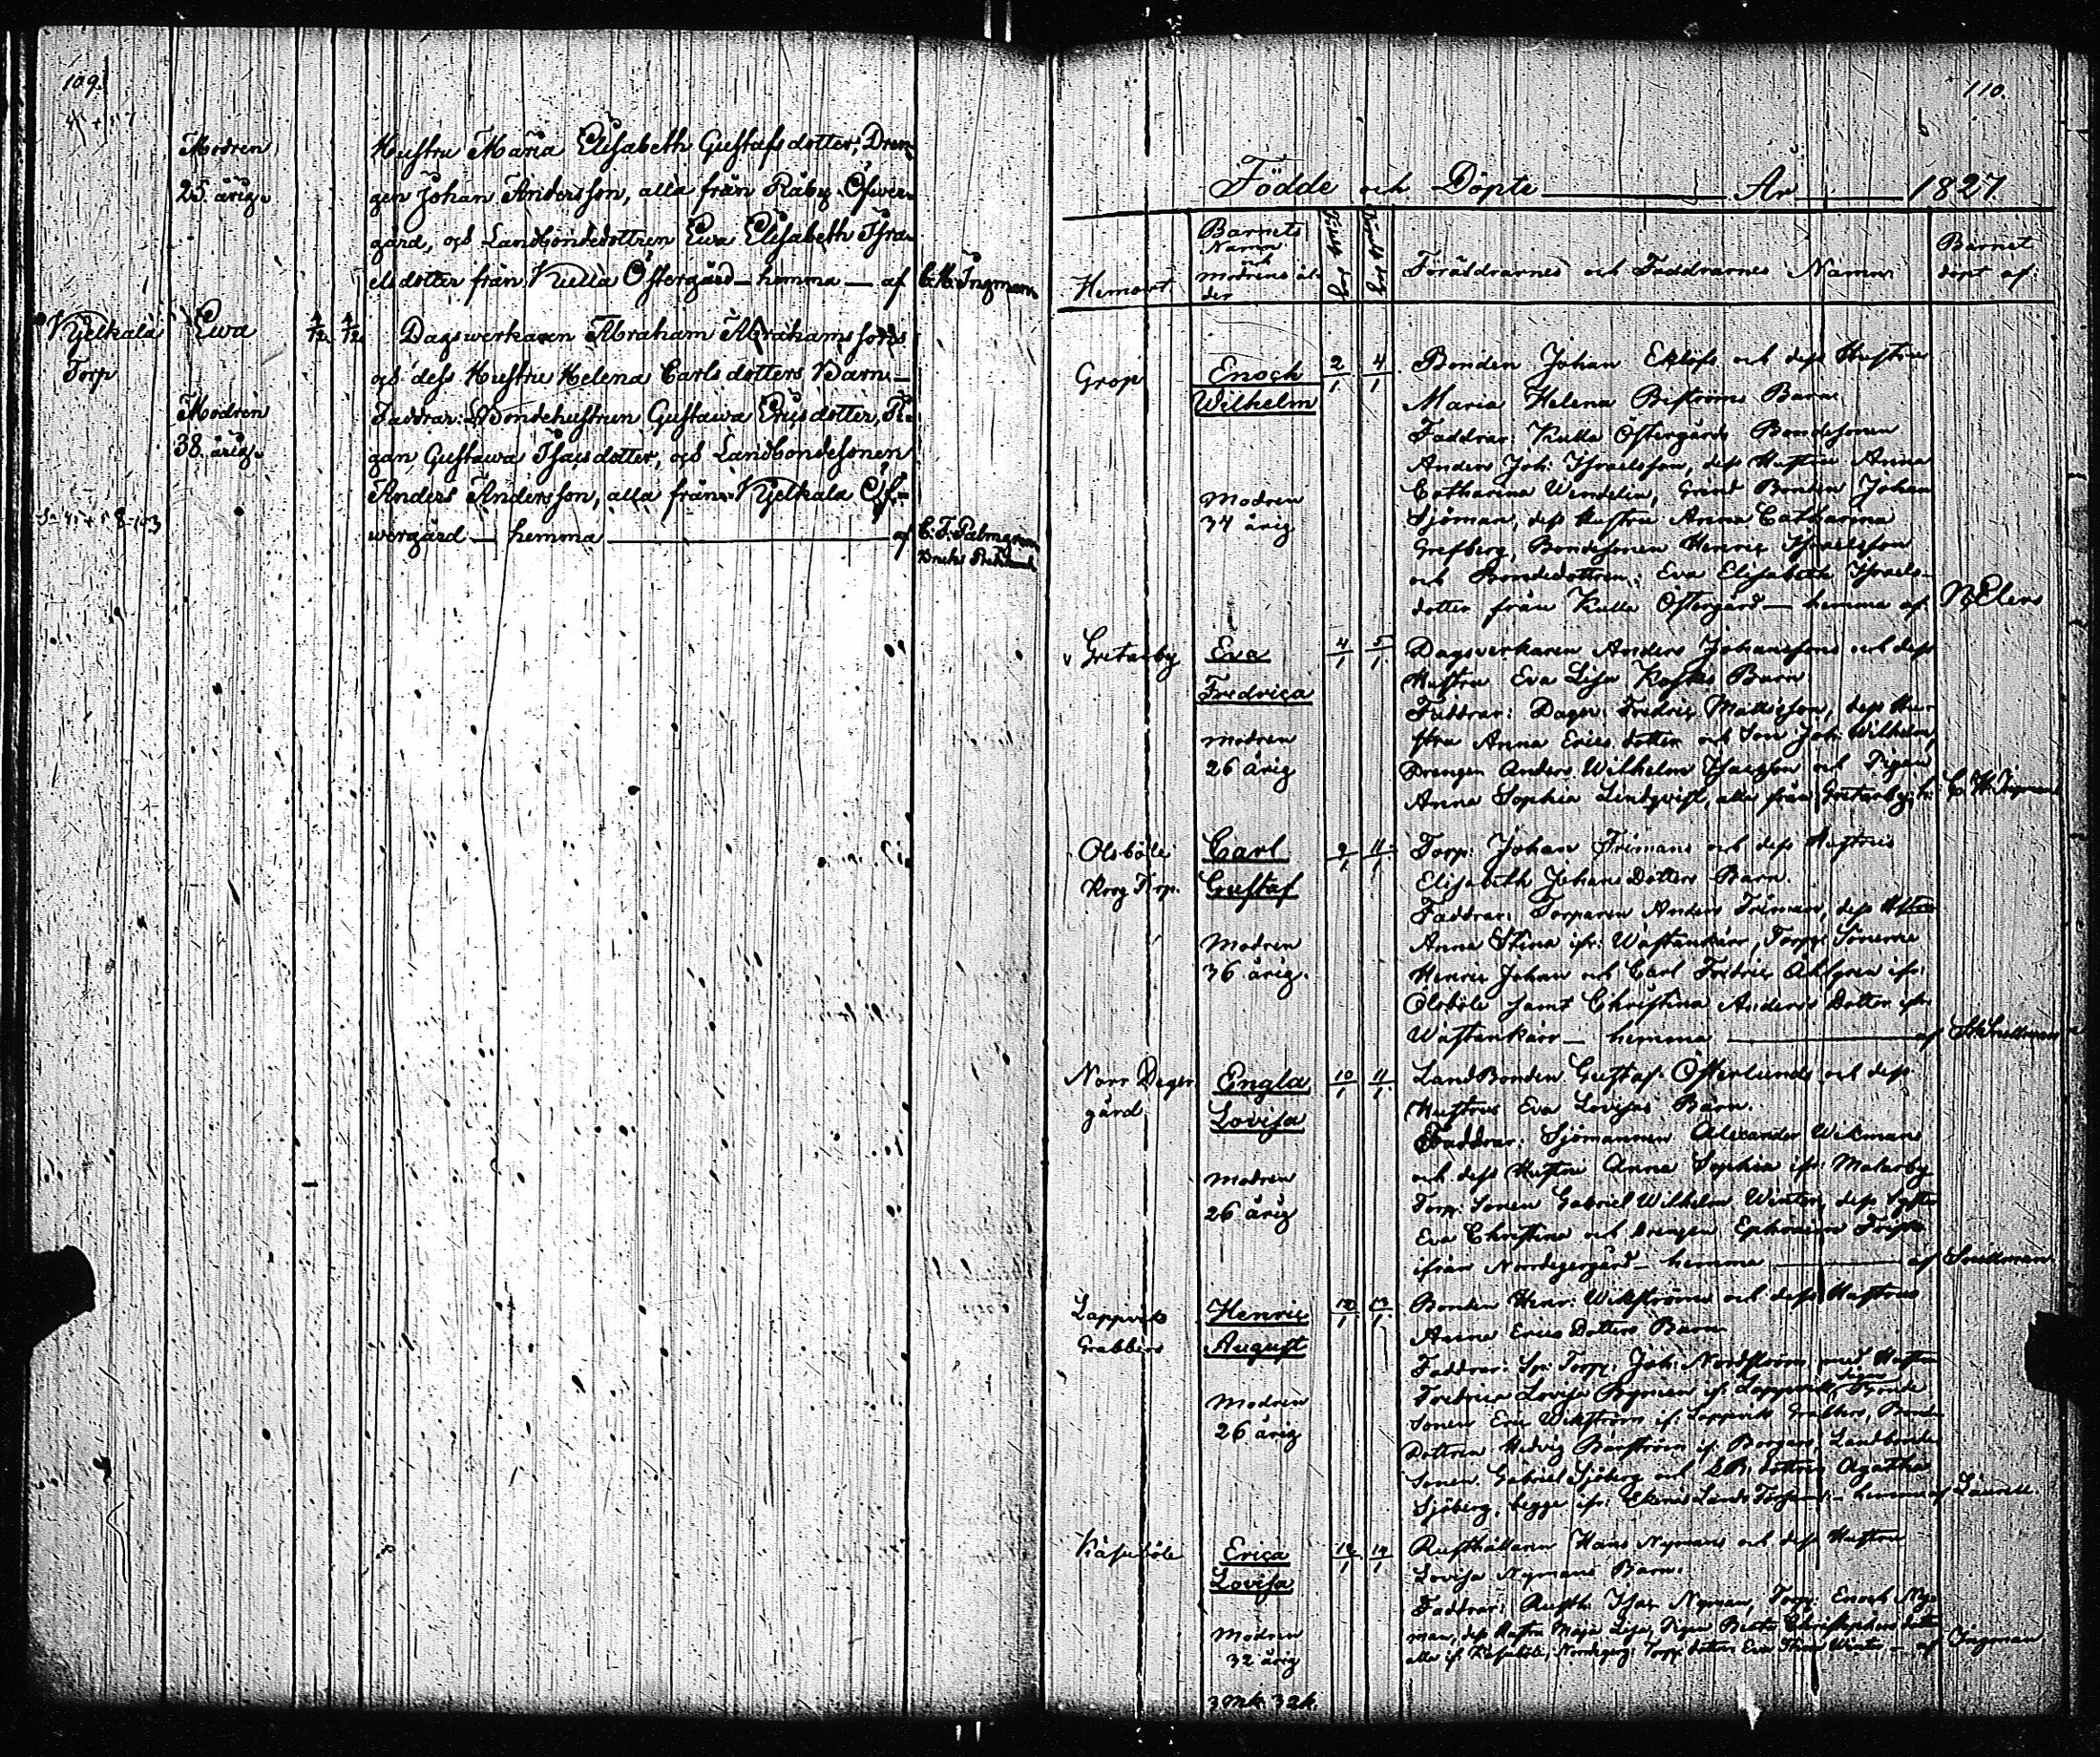 109.
Modren
25. årig.
Hustru Maria Elisabeth Gustafsdotter, Dren-
gen Johan Andersson, alla från Råby Öfwer-
gård, och Landbondedottren Ewa Elisabeth Isra-
elsdotter från Kulla Östergård — hemma — af C. H. Ingman
Kyelkala Torp
Ewa
4/12 4/12
Modren
38. årig.
Dagswerkaren Abraham Abrahamssons
och dess Hustru Helena Carlsdotters Barn. —
Faddrar: Bondehustrun Gustawa Ericsdotter, Pi-
gan Gustawa Isacsdotter, och Landbondesonen
Anders Andersson, alla från Kyelkala Öf-
wergård — hemma — af C. F. Palmgren
110.
Födde och Döpte — År — 1827.
Hemort
Barnets Namn och modrens ål-der
Född dag
Döpt dag
Föräldrarnes och Faddrarnes Namn
Barnet döpt af:
Grop
Enoch
Wilhelm
2/1 4/1
Modren
34 årig
Bonden Johan Eklöfs och dess Hustru
Maria Helena Biströms Barn.
Faddrar: Kulla Östergårds Bondesonen
Anders Joh: Israelsson, dess Hustru Anna
Catharina Wendelin, Bonden Johan
Sjöman, dess Hustru Anna Catharina
Grefberg, Bondesonen Henric Israelsson
och Bondedottren Eva Elisabeth Israels-
dotter från Kulla Östergård — hemma af
Gretarby
Eva
Fredrica
4/1 5/1
Modren
26 årig
Dagsverkaren Anders Johanssons och dess
Hustru Eva Lisa Barn
Faddrar: Dagsv: Fredric Mattsson, dess Hu-
stru Anna Erics dotter och Son Joh: Wilhelm,
Drengen Anders Wilhelm Isacsson och Pigan
Anna Sophia Lindqvist, alla från Gretarby, C. H. Ingman
Olsböle
Torp.
Carl
Gustaf
9/1 11/1
Modren
36 årig.
Torp: Johan Frimans och dess Hustrus
Elisabeth Johans Dotters Barn.
Faddrar: Torparen Anders Friman, dess Hustru
Anna Stina ifr: Wästankärr, Torp: Sönerne
Henric Johan och Carl Fredric Ahlgren ifr:
Olsböle samt Christina Anders Dotter ifr:
Wästankärr — hemma — af
Norr Deger
gård
Engla
Lovisa
10/1 11/1
Modren
26 årig
LandBonden Gustaf Österlunds och dess
Hustrus Eva Lovisas Barn.
Faddrar: Sjömannen Alexander Wikman
och dess Hustru Anna Sophia ifr: Malarby
Torp: Sonen Gabriel Wilhelm Winter, dess Syster
Eva Christina och Drengen Ephraim
ifrån Norrdegergård — hemma — af Snellman
Lappvik
Grabbers
Henric
August
Modren
26 årig
Bonden Henr: Wikströms och dess Hustrus
Anna Erics Dotters Barn
Faddrar: Torp: Joh: Nordström med Hustru
Fredrica Lovisa Nyman if: Lappvik,
Sonen Eric Wikström if: Lappvik Grabbers, Bonde
Dottren Hedvig if: Landbonde
Sonen Gabriel Sjöberg och dottren Agatha
Sjöberg, begge ifr: Ekenäs Lands — hemma af
Erica
Lovisa
Modren
32 årig
Rusthållaren Hans Nymans och dess Hustru
Lovisa Nymans Barn.
Faddrar: Rusth: Isac Nyman, Torp: Enoch Ny-
man, dess Hustru Maja Lisa, Pigan Beata Christophers dotter
alla if: Torp: dottren Eva Stina Winter — af Ingman
3 Mk. 32 k.